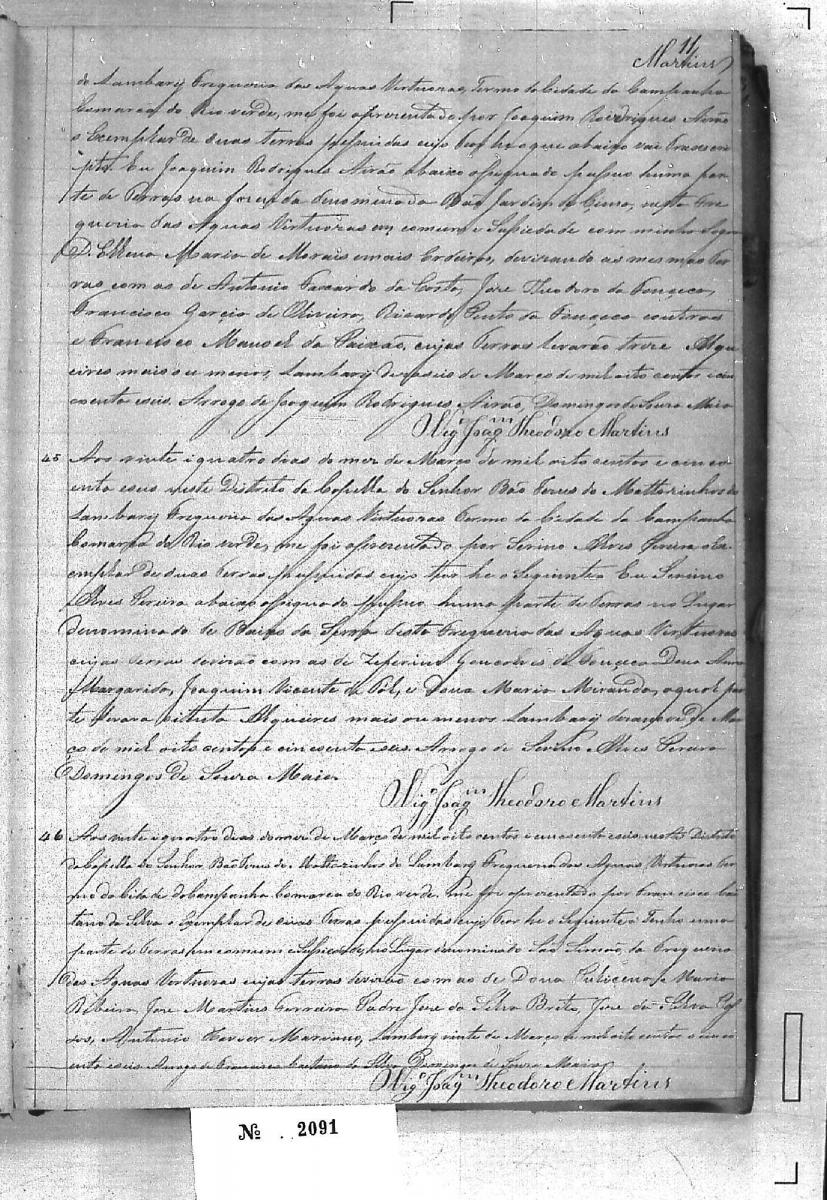 11
Martins
do Lambary Freguesia das Aguas Virtuosas, Termo da Cidade da Campanha
Comarca do Rio verde, me foi aprezentado por Joaquim Rodrigues Airão
o Exemplar de suas terras pussuidas cujo Thor he o que abaixo vai Transcri
pto. Eu Joaquim Rodrigues Airão abaixo assignado pussuo huma par
te de Terras na fazenda denominada Bão Jardim de Sima, nesta Fre
guesia das Aguas Virtuosas em comum e Supiedade com minha Sogra
D. Maria de Morais e mais Erdeiros, devizando as mesmas Ter
ras com as de Antonio da Costa, Jose Theodoro da Fonçeca,
Francisco Garçia de Oliveira, Ricardo Pinto da Fonçeca e outros
e Francisco Manoel da Paixão, cujas Terras levarão treze Alqu
eires mais ou menos, Lambary dezaseis de Março de mil oito centos e cin
coenta e seis. Arrogo de Joaquim Rodrigues Airão, Domingos de Souza Maia
Vigº Joaqm Theodoro Martins
45 Aos vinte i quatro dias do mez de Março de mil oito centos e cinco
enta e seis neste Distrito da Capella do Senhor Bão Jezus do Mattozinhos do
Lambary Freguesia das Aguas Virtuosas Termo da Cidade da Campanha
Comarca do Rio verde, me foi aprezentado por Alves Pereira o Ex
emplar de suas Terras pussuidas cujo Thor he o Seguinte Eu
Alves Pereira abaixo assignado pussuo huma parte de Terras no Lugar
denominado de Baixo da Serra desta Freguesia das Aguas Virtuosas
cujas terras devizão com as de Zeferino Goncalves da Fonçeca Dona Anna
Margarida, Joaquim Vicente de e Dona Maria Miranda, a qual par
te levara oitenta Alqueires mais ou menos Lambary dezanove de Mar
ço de mil oito centos e cincoenta e seis. Arrogo de Alves Pereira
Domingos de Souza Maia
Vigº Joaqm Theodoro Martins
46 Aos vinte i quatro dias do mez de Março de mil oito centos e cincoenta e seis neste Distrito
da Capella do Senhor Bão Jezus do Mattozinhos do Lambary Freguesia das Aguas Virtuosas Ter
mo da Cidade da Campanha Comarca do Rio verde, me foi aprezentado por Francisco Cae
tano da Silva o Exemplar de suas Terras pussuidas cujo Thor he o Seguinte Tenho uma
parte de Terras em comum e Supiedade, no Lugar denominado São Simão da Freguesia
das Aguas Virtuosas cujas terras devizão com as de Dona e Maria
Ribeira, Jose Martins Ferreira Padre Jose da Silva Brito, Jose da Silva
Antonio Xavier Mariano, Lambary vinte de Março de mil oito centos e cinco
enta e seis Arrogo de Francisco Caetano da Silva Domingos de Souza Maia
Vigº Joaqm Theodoro Martins
Nº 2091